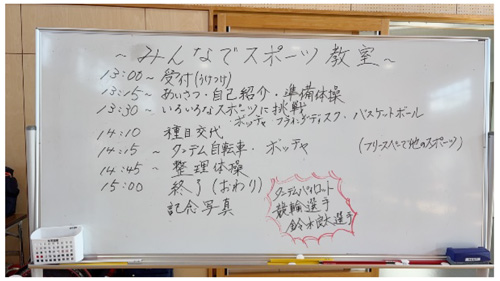 ～みんなでスポーツ教室～
13:00～ 受付(うけつけ)
13:15～ あいさつ・自己紹介・準備体操
13:30～ いろいろなスポーツに挑戦
・ボッチャ フライングディスク・バスケットボール
14:10 種目交代
14:15 ～タンデム自転車・ボッチャ (フリースペースで他のスポーツ)
14:45～ 整理体操
15:00 終了(おわり)
記念写真
タンデムパイロット
競輪選手
鈴木良太選手